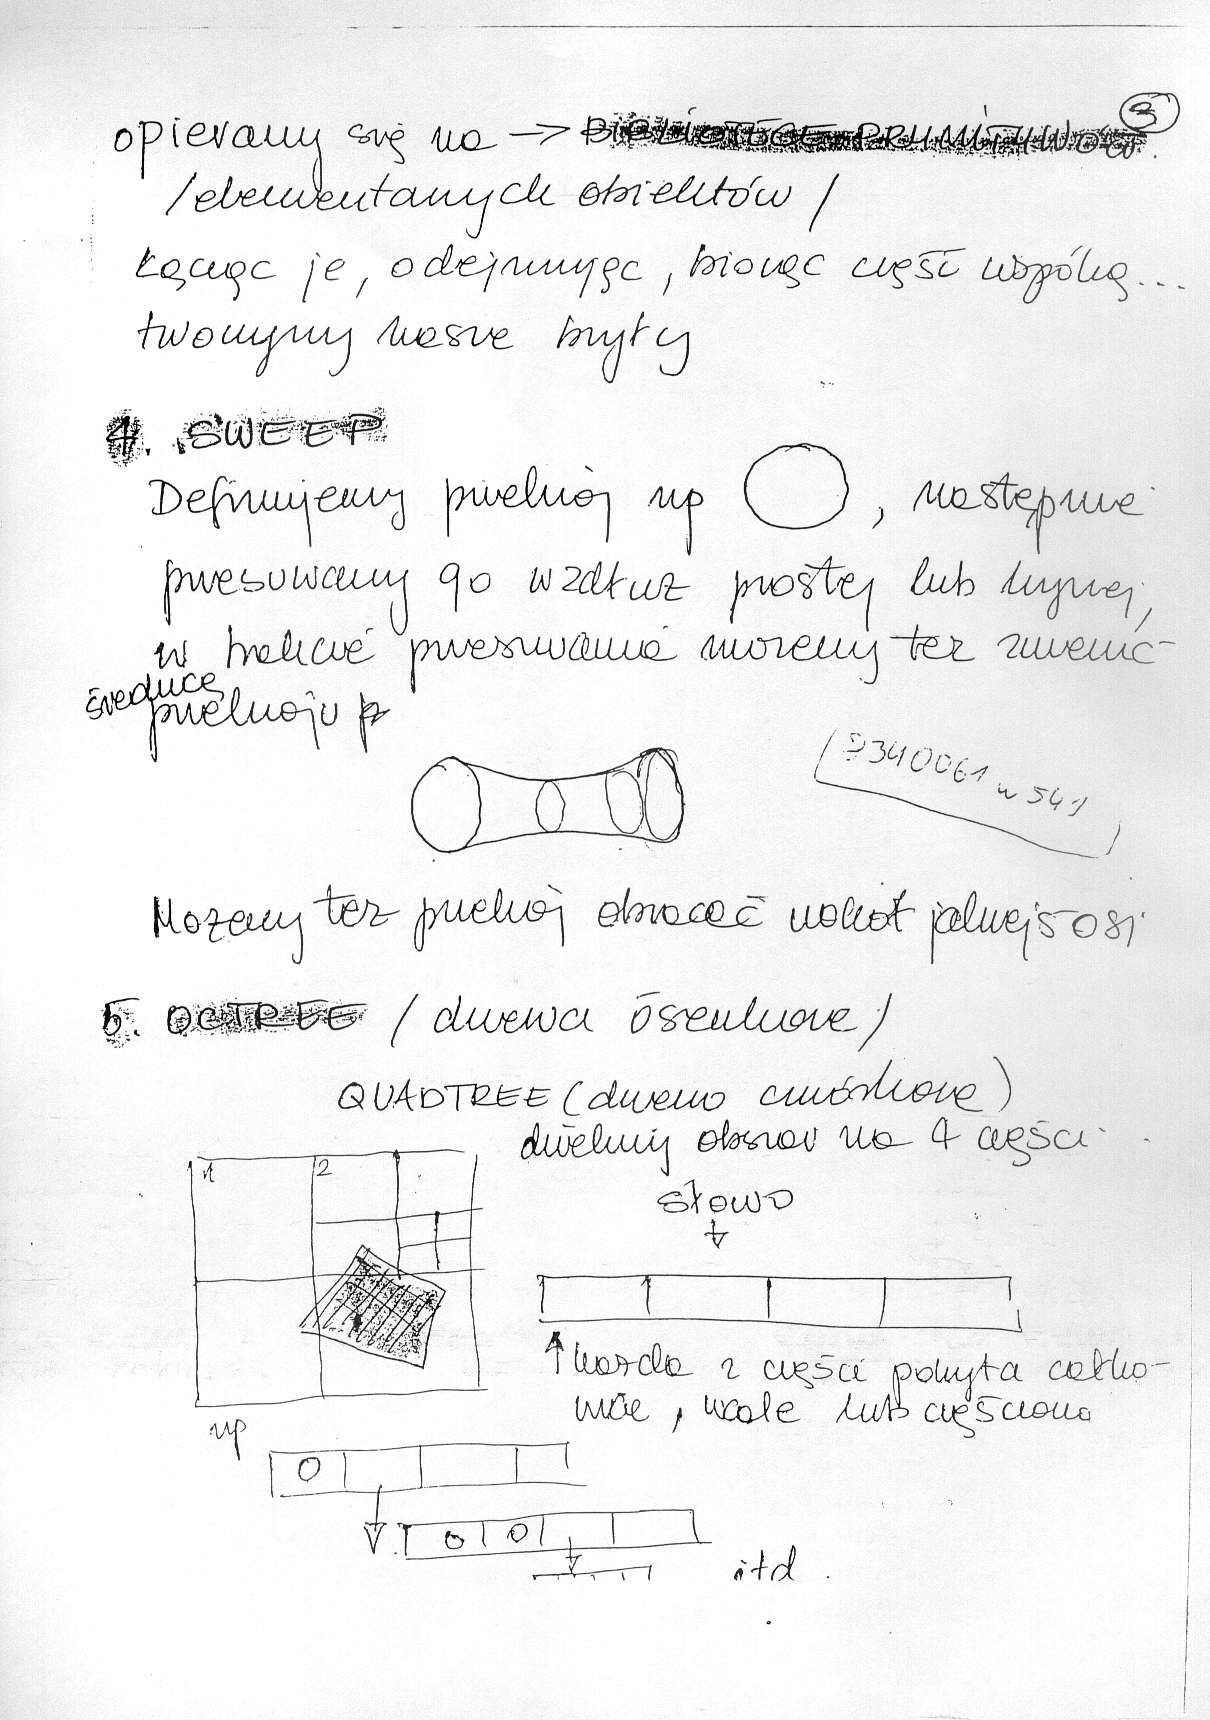 3
opieramy się na → BIBLIOTECE PRYMITYWÓW.
/elementarnych obiektów/
Łącząc je, odejmując, biorąc część wspólną...
tworzymy nasze bryły
4. SWEEP
Definiujemy przekrój np , następnie
przesuwamy go wzdłuż prostej lub krzywej,
w trakcie przesuwania możemy też zmienić
średnicę
przekroju
9340061
w 541
Możemy też przekrój obracać wokół jakiejś osi
5. OCTREE / drzewa ósemkowe /
QUADTREE (drzewo czwórkowe)
dzielimy obszar na 4 części
1 2
słowo
każda z części pokryta całko-
wicie, wcale lub częściowo
np
0
0 0
itd.